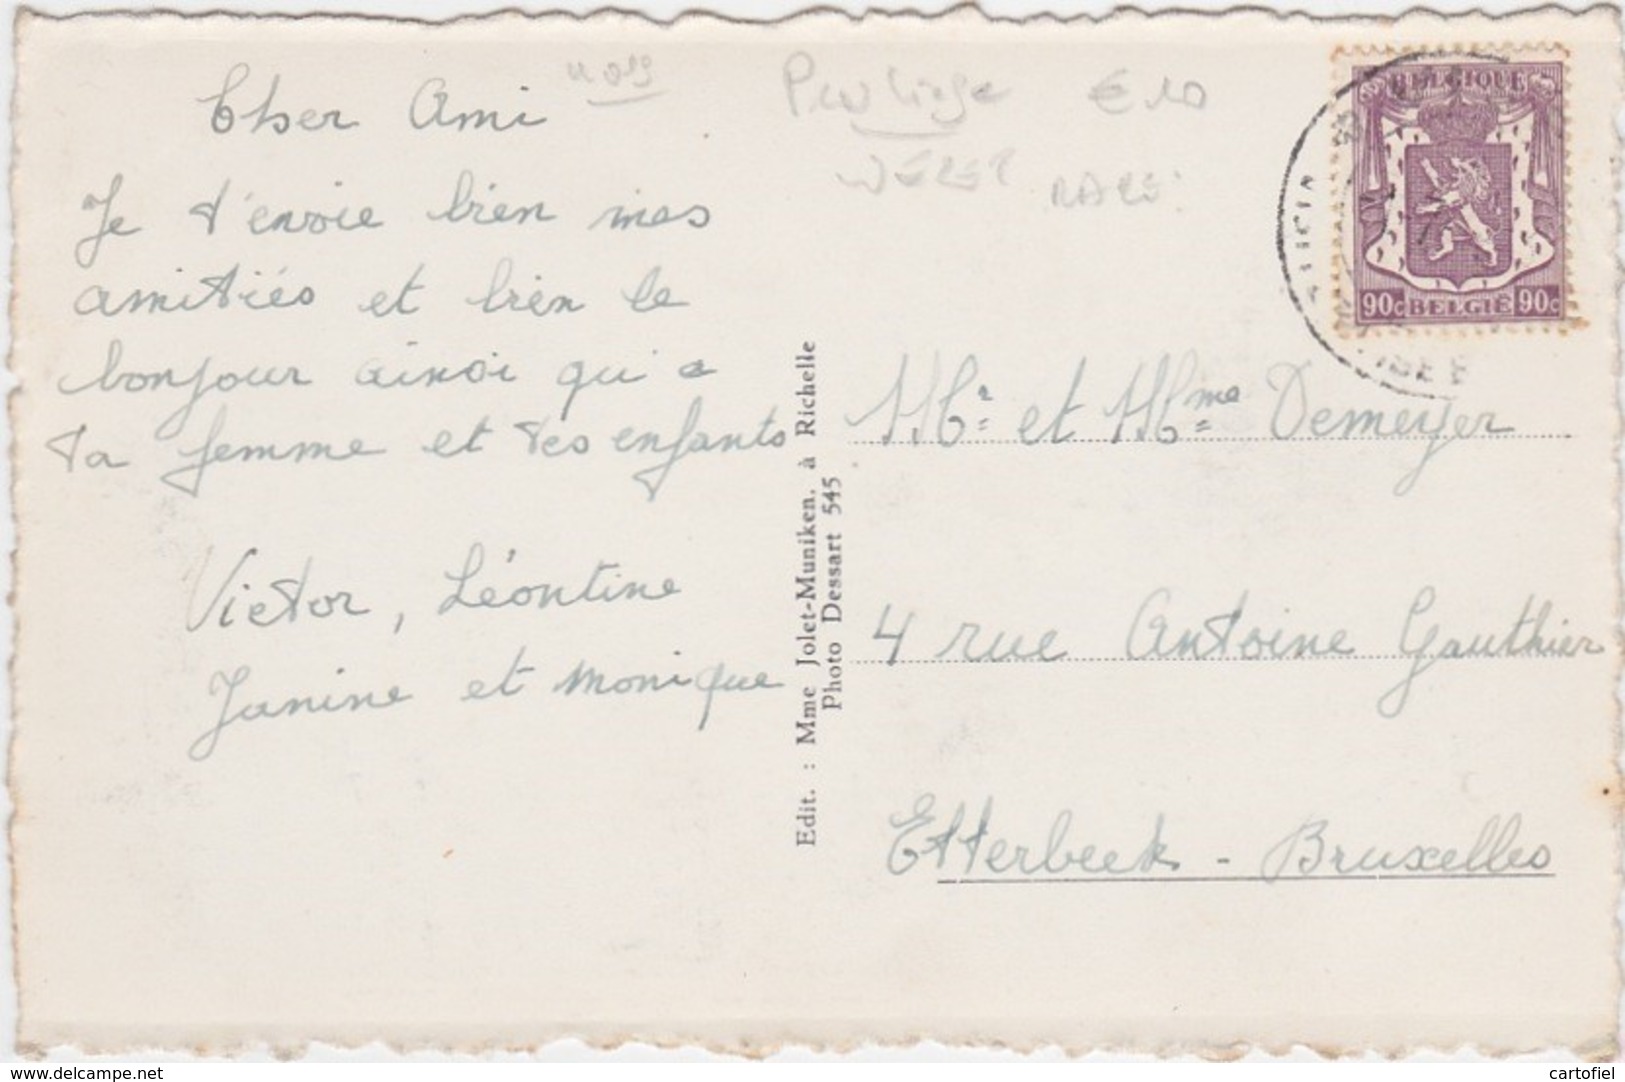 Cher Ami
Je t'envoie bien mes
amitiés et bien le
bonjour ainsi qui a
ta femme et tes enfants
Victor, Léontine
Janine et Monique
Edit. : Mme Jolet-Muniken, à Richelle
Photo Dessart 545
€10
RARE!
BELGIQUE
90c BELGIE 90c
Mr et Mme Demeyer
4 rue Antoine Gauthier
Etterbeek - Bruxelles
www.delcampe.net
cartofiel